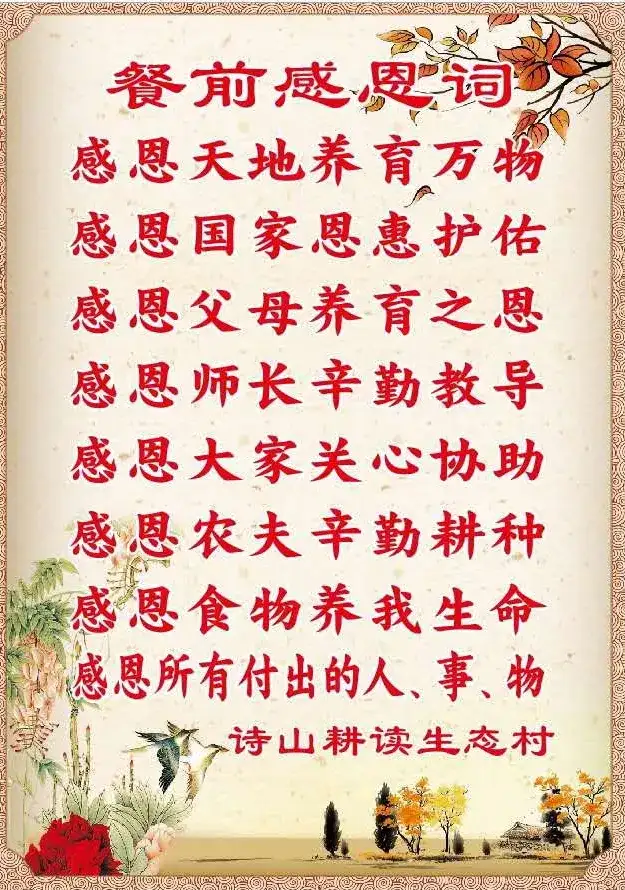 餐前感恩词
感恩天地养育万物
感恩国家恩惠护佑
感恩父母养育之恩
感恩师长辛勤教导
感恩大家关心协助
感恩农夫辛勤耕种
感恩食物养我生命
感恩所有付出的人、事、物
诗山耕读生态村